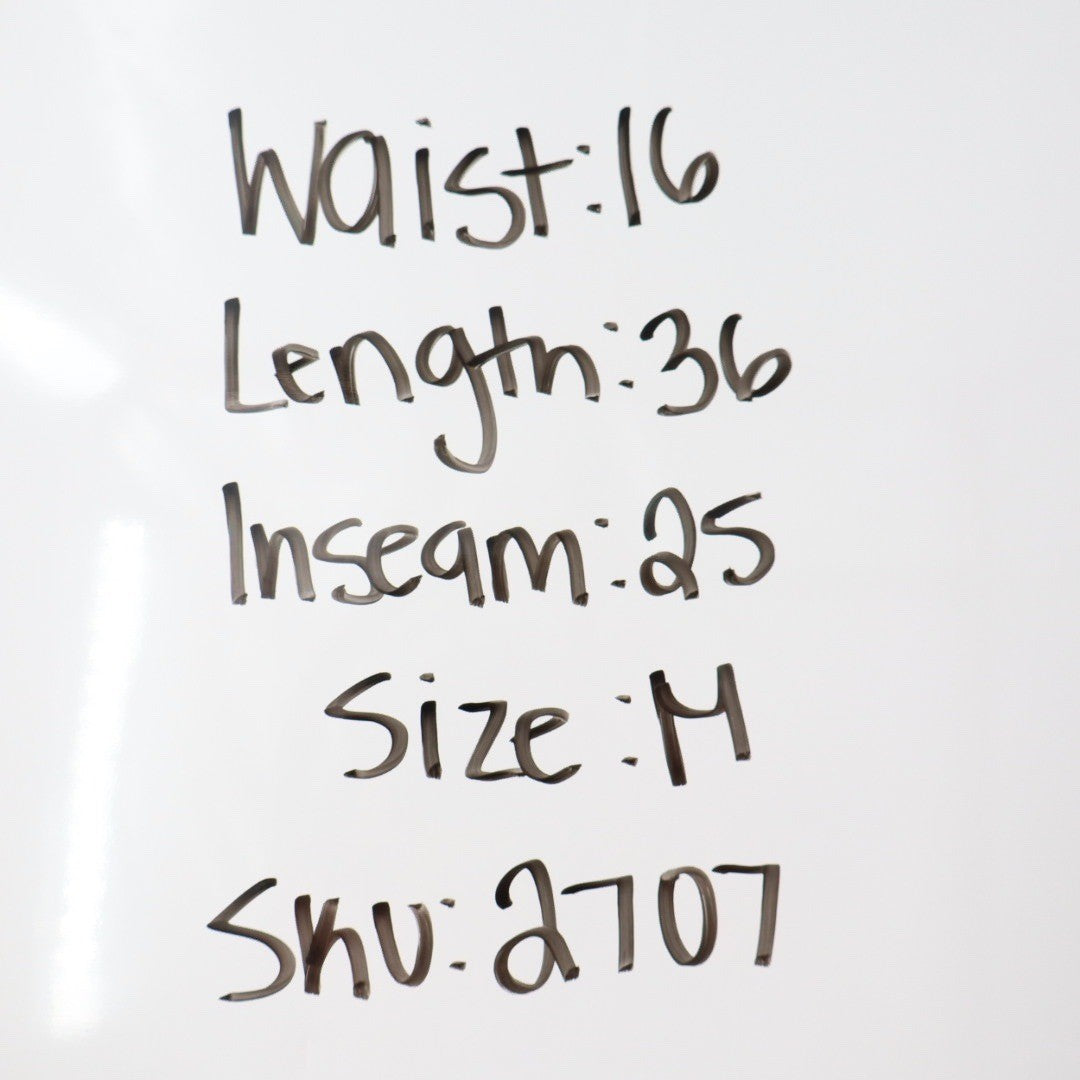 Waist:16
Length:36
Inseam:25
Size:M
Sku:2707